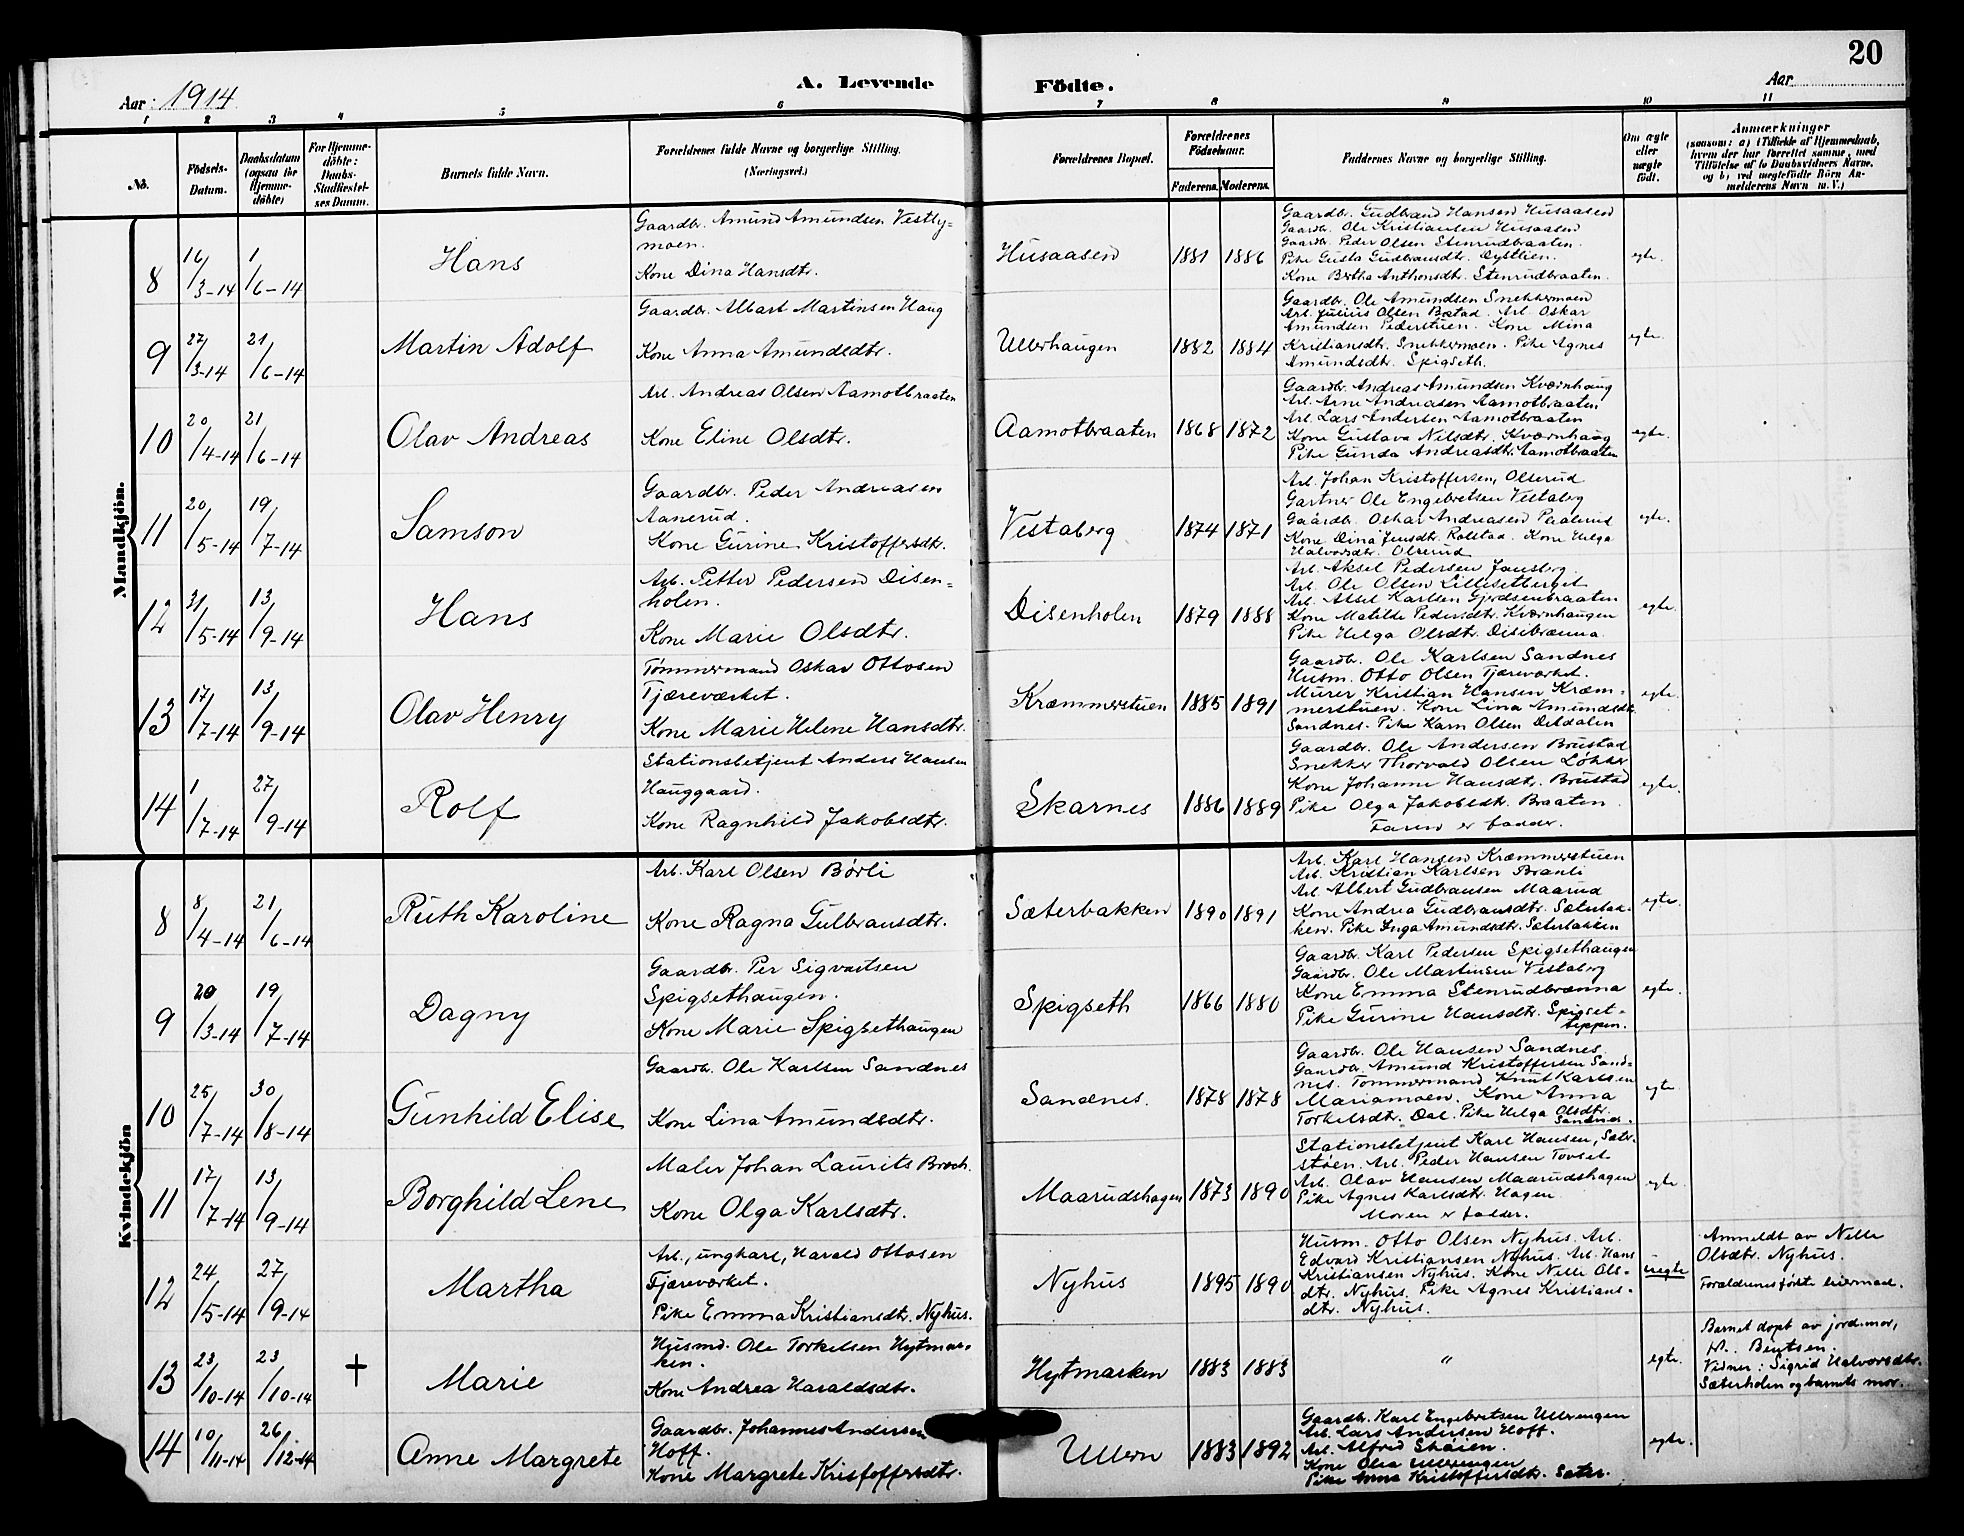 20
Aar: 1914
A. Levende
Födte.
Aar
1 2 3 4 5 6 7 8 9 10 11
No.
Födsels-Datum.
Daabsdatum (ogsaa for Hjemmedöbte)
For Hjemmedöbte: Daabs-Stadfæstelses Datum.
Barnets fulde Navn.
Forældrenes fulde Navne og borgerlige Stilling. (Næringsvei.)
Forældrenes Bopæl.
Forældrenes Födselsaar.
Faderens. Moderens.
Faddernes Navne og borgerlige Stilling.
Om ægte eller uægte födt.
Anmærkninger
(saasom: a) i Tilfælde af Hjemmedaab, hvem der har forrettet samme, med Tilföielse af to Daabsvidners Navne, og b) ved uægtefödte Börn Anmelderens Navn m. V.)
Mandkjön.
8 16/3-14 1/6-14 Hans
Gaardbr. Amund Amundsen Vestly-
moen.
Kone Dina Hansdtr.
Husaasen 1881 1886
Gaardbr. Gudbrand Hansen Husaasen
Gaardbr. Ole Kristiansen Husaasen
Gaardbr. Peder Olsen Stenrudbraaten.
Pike Gusta Gudbrandsdtr. Dystlien.
Kone Bertha Anthonsdtr. Stenrudbraaten.
egte.
9 27/3-14 21/6-14 Martin Adolf
Gaardbr. Albart Martinsen Haug
Kone Anna Amundsdtr.
Ullerhaugen 1882 1884
Gaardbr. Ole Amundsen Snekkermoen
Arb. Julius Olsen Bøstad. Arb. Oskar
Amundsen Pederstuen. Kone Mina
Kristiansdtr. Snekkermoen. Pike Agnes
Amundsdtr. Spigseth.
egte.
10 20/4-14 21/6-14 Olav Andreas
Arb. Andreas Olsen Aamotbraaten
Kone Eline Olsdtr.
Aamotbraaten 1868 1872
Gaardbr. Andreas Amundsen Kværnhaug
Arb. Arne Andreasen Aamotbraaten
Arb. Lars Andersen Aamotbraaten
Kone Gustava Nilsdtr. Kværnhaug
Pike Gunda Andreasdtr. Aamotbraaten
egte.
11 20/5-14 19/7-14 Samson
Gaardbr. Peder Andreasen
Aanerud.
Kone Gurine Kristoffersdtr.
Vestaberg 1874 1871
Arb. Johan Kristoffersen, Olserud
Gartner Ole Engebretsen Vestaberg
Gaardbr. Oskar Andreasen Paalerud
Kone Dina Jensdtr. Rolstad. Kone Helga
Halvorsdtr. Olserud
egte.
12 31/5-14 13/9-14 Hans
Arb. Petter Pedersen Disen-
holen.
Kone Marie Olsdtr.
Disenholen 1879 1888
Arb. Aksel Pedersen Jonsberg.
Arb. Ole Olsen Lillesetberget
Arb. Aksel Karlsen Gjerdsenbraaten
Kone Matilde Pedersdtr. Kværnhaugen
Pike Helga Olsdtr. Disibrænna.
egte.
13 17/7-14 13/9-14 Olav Henry
Tømmermand Oskar Ottosen
Tjæreværket.
Kone Marie Helene Hansdtr.
Kræmmerstuen 1885 1891
Gaardbr. Ole Karlsen Sandnes
Husm. Otto Olsen Tjæreværket.
Murer Kristian Hansen Kræm-
merstuen. Kone Lina Amundsdtr.
Sandnes. Pike Karn Olsen Deldalen
egte.
14 1/7-14 27/9-14 Rolf
Stationsbetjent Anders Hansen
Hauggaard.
Kone Ragnhild Jakobsdtr.
Skarnes 1886 1889
Gaardbr. Ole Andersen Brustad
Snekker Thorvald Olsen Løkker
Kone Johanne Hansdtr. Brustad
Pike Olga Jakobsdtr. Braaten.
Faren er fadder.
egte.
Kvindekjön
8 8/4-14 21/6-14 Ruth Karoline
Arb. Karl Olsen Børli
Kone Ragna Gulbransdtr.
Sæterbakken 1890 1891
Arb. Karl Hansen Kræmmerstuen
Arb. Kristian Karlsen Branli
Arb. Albert Gudbransen Maarud
Kone Andrea Gudbransdtr. Sæterbak-
ken. Pike Inga Amundsdtr. Sæterbakken
egte.
9 20/3-14 19/7-14 Dagny
Gaardbr. Per Sigvartsen
Spigsethaugen.
Kone Marie Spigsethaugen
Spigseth 1866 1880
Gaardbr. Karl Pedersen Spigsethaugen
Gaardbr. Ole Martinsen Vestaberg
Kone Emma Stenrudbrænna
Pike Gurine Hansdtr. Spigset-
teppen.
egte.
10 25/7-14 30/8-14 Gunhild Elise
Gaardbr. Ole Karlsen Sandnes
Kone Lina Amundsdtr.
Sandnes. 1878 1878
Gaardbr. Ole Hansen Sandnes
Gaardbr. Amund Kristoffersen Sand-
nes. Tømmermand Knut Karlsen
Mariamoen. Kone Anna
Torkelsdtr. Dal. Pike Helga Olsdtr.
Sandnes.
egte
11 17/7-14 13/9-14 Borghild Lene
Maler Johan Laurits Broch.
Kone Olga Karlsdtr.
Maarudshagen 1873 1890
Stationsbetjent Karl Hansen, Sæter-
støen. Arb. Peder Hansen Tovset
Arb. Olav Hansen Maarudshagen
Pike Agnes Karlsdtr. Hagen.
Moren er fadder.
egte.
12 24/5-14 27/9-14 Martha
Arb., ungkarl, Harald Ottosen
Tjæreværket.
Pike Emma Kristiansdtr. Nyhus.
Nyhus 1895 1890
Husm. Otto Olsen Nyhus. Arb.
Edvard Kristiansen Nyhus. Arb. Hans
Kristiansen Nyhus. Kone Nelle Ols-
dtr. Nyhus. Pike Agnes Kristians-
dtr. Nyhus.
uegte
Anmeldt av Nelle
Olsdtr. Nyhus.
Forældrenes første leiermaal.
13 23/10-14 23/10-14 † Marie
Husmd. Ole Torkelsen Hytmar-
ken.
Kone Andrea Haraldsdtr.
Hytmarken 1883 1883
"
egte.
Barnet døpt av jordmor,
Bentsen.
Vidner: Sigrid Halvorsdtr.
Sæterholen og barnets mor.
14 10/11-14 26/12-14 Anne Margrete
Gaardbr. Johannes Andersen
Hoff.
Kone Margrete Kristoffersdtr.
Ullern 1883 1892
Gaardbr. Karl Engebretsen Ullerengen
Arb. Lars Andersen Hoff.
Arb. Alfred Skøien.
Kone Olia Ullerengen
Pike Anna Kristoffersdtr. Sæter.
egte.